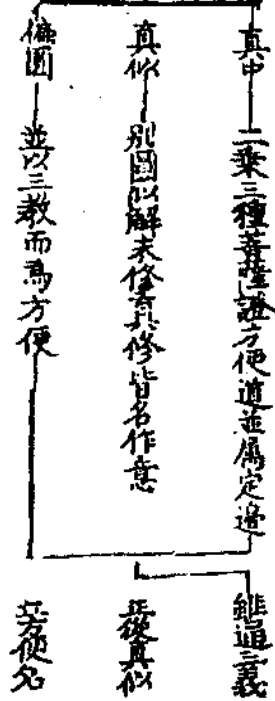 真中
二乗三種菩薩證方便道並属定邊
真似
別圓似解未修真修皆名作意
偏圓
並以三教而爲方便
雖通三義
正從真似
立方便名